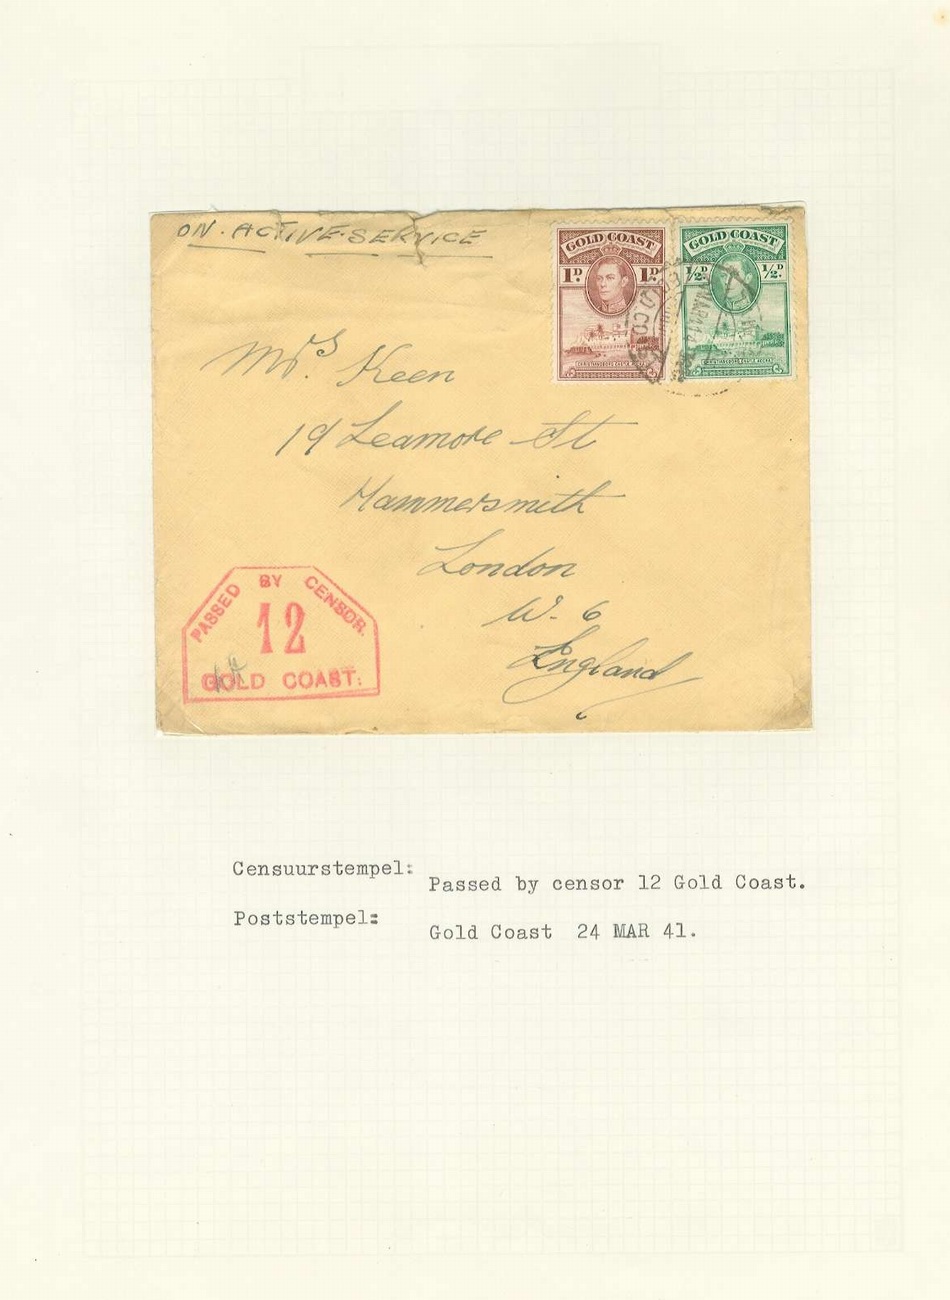 ON · ACTIVE · SERVICE
GOLD COAST
1D. 1D.
CHRISTIANSBORG CASTLE ACCRA
GOLD COAST
½D. ½D.
CHRISTIANSBORG CASTLE ACCRA
GOLD CO
Mrs. Keen
19 Leamore St
Hammersmith
London
W. 6
England
PASSED BY CENSOR.
12
GOLD COAST.
Censuurstempel:
Passed by censor 12 Gold Coast.
Poststempel:
Gold Coast 24 MAR 41.